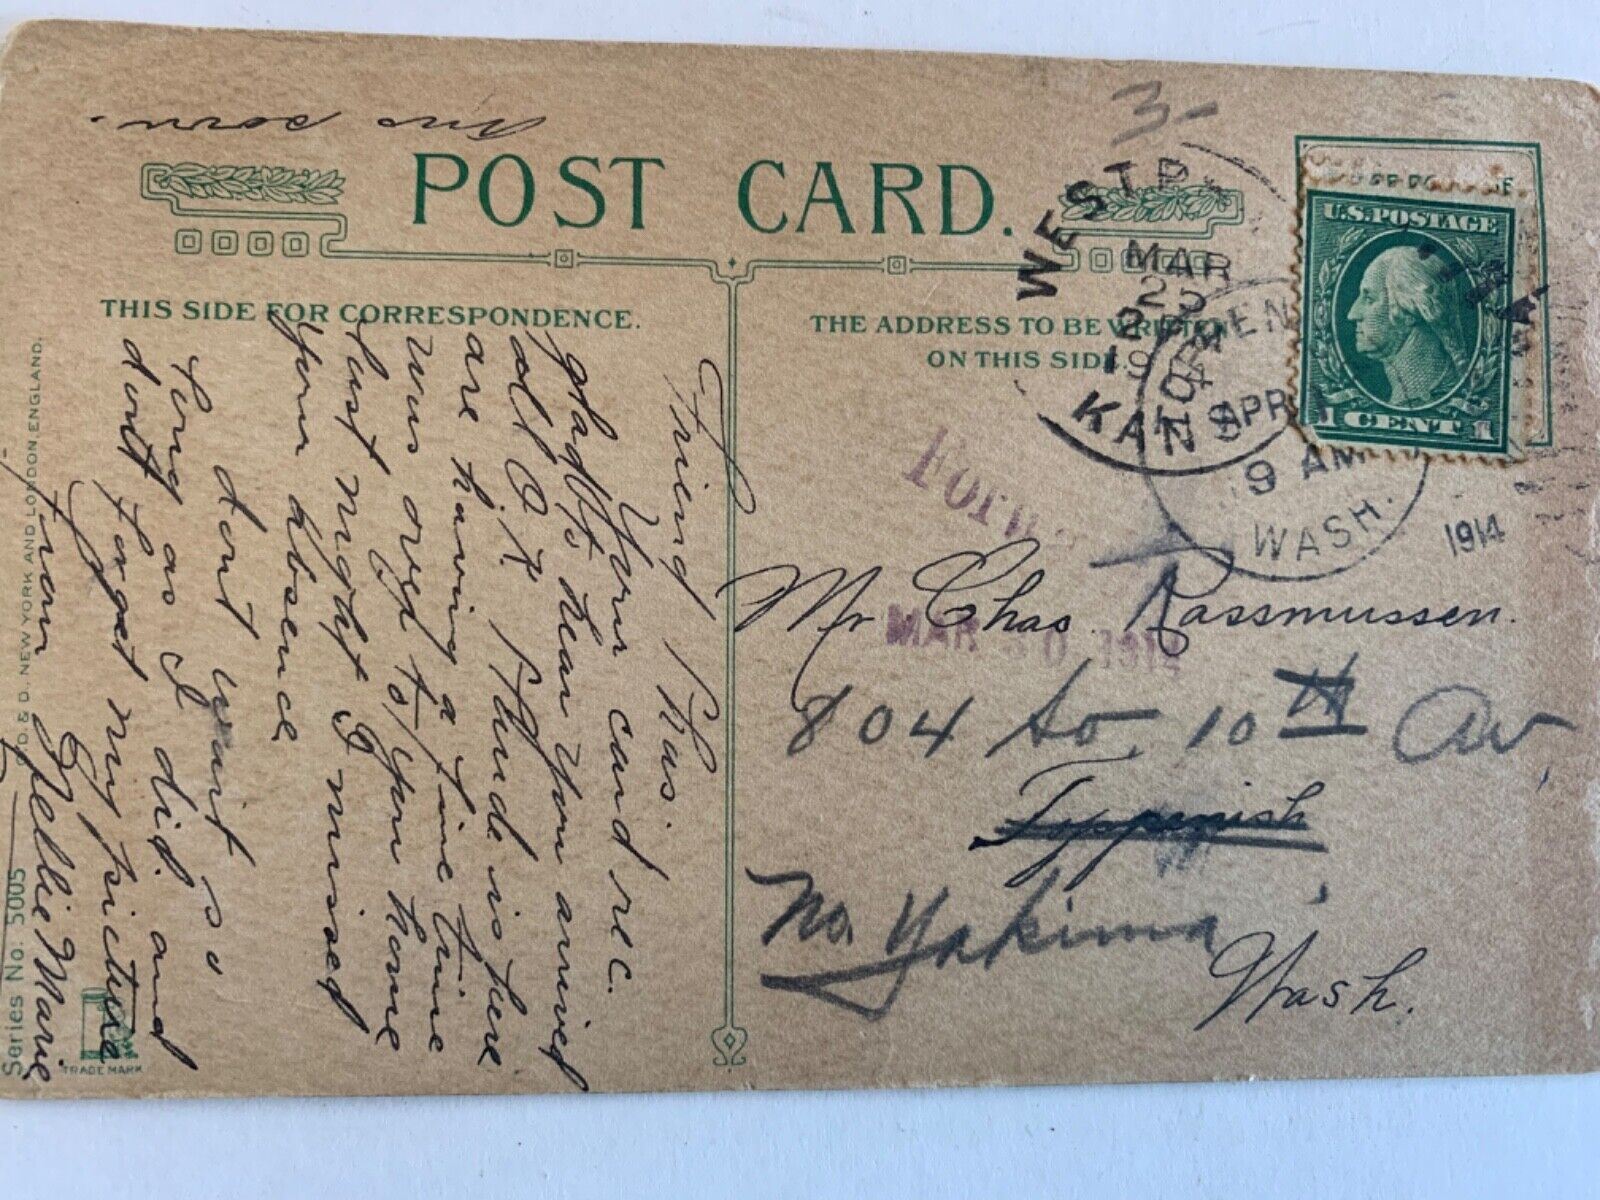 Ans soon.
POST CARD.
THIS SIDE FOR CORRESPONDENCE.
THE ADDRESS TO BE WRITTEN
ON THIS SIDE.
3-
WESTP
MAR
1914
KANS
TOPPENISH
APR 1
9 AM
WASH.
1914
U.S. POSTAGE
1 CENT 1
Forwa
MAR 30 1914
Friend Chas.
Your card rec.
glad to hear you arrived
all O.K. Maude is here
are having a fine time
was over to your home
last night I missed
your absence
dont wait so
long as I did. and
dont forget my picture
From Nellie Marie
Mr Chas. Rassmussen.
804 So. 10th Av
Toppenish
No. Yakima
Wash.
Series No. 5005
O. & D. NEW YORK AND LONDON ENGLAND.
TRADE MARK